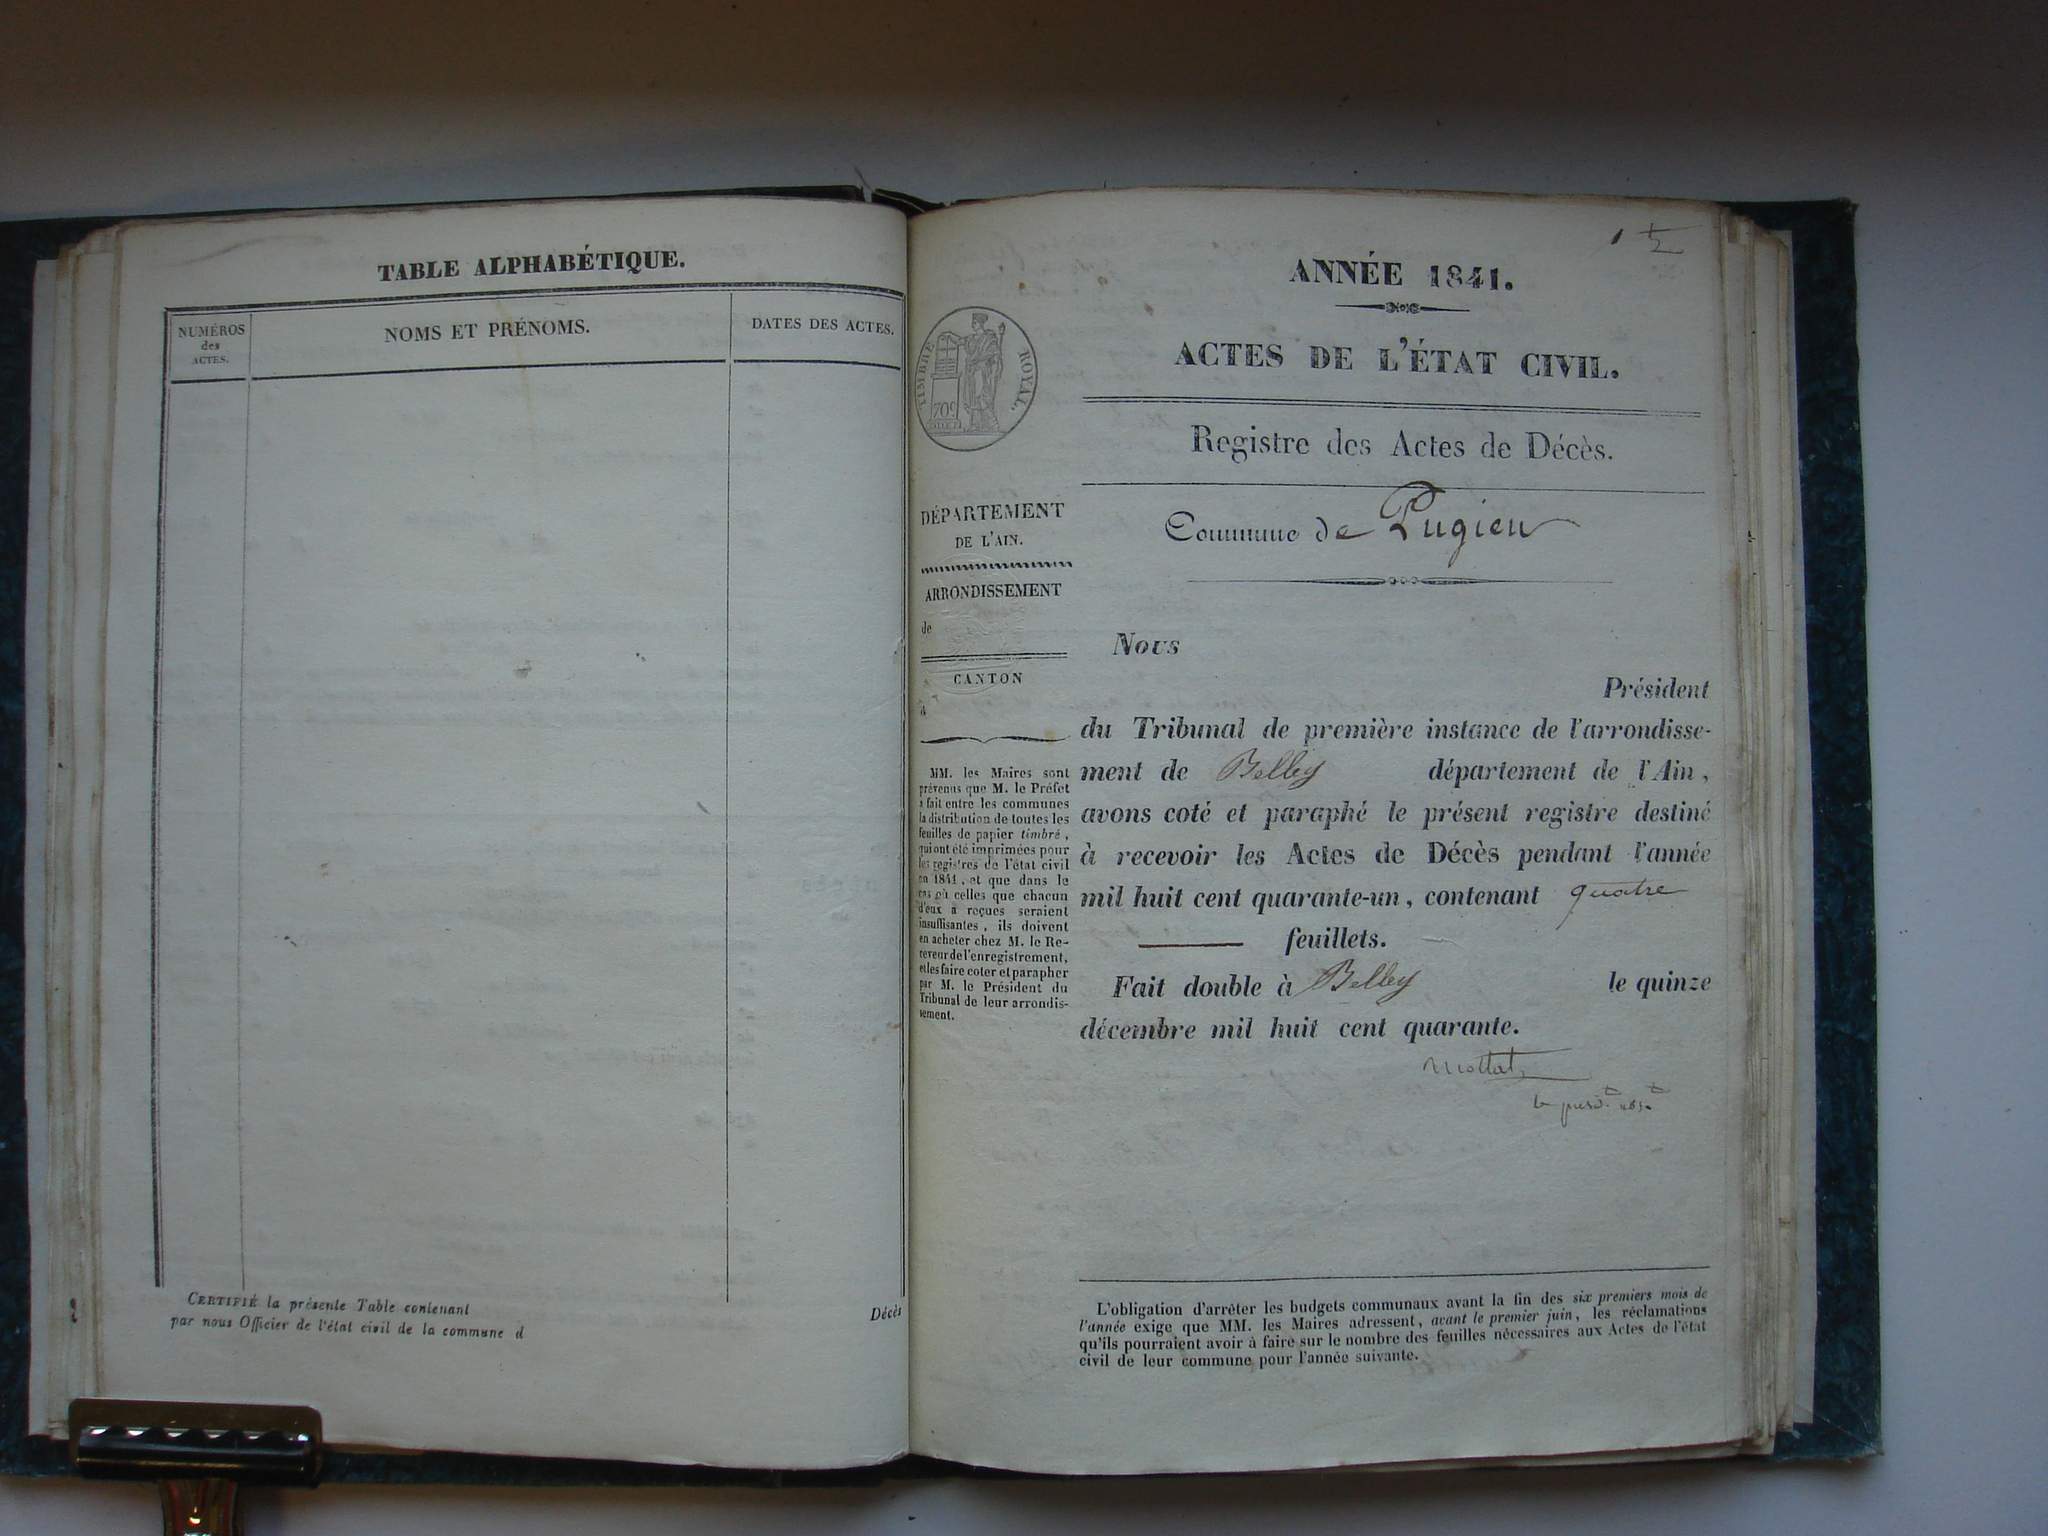 TABLE ALPHABÉTIQUE.
NUMÉROS
des
ACTES.
NOMS ET PRÉNOMS.
DATES DES ACTES.
CERTIFIÉ la présente Table contenant
par nous Officier de l'état civil de la commune d
Décès
1
ANNÉE 1841.
ACTES DE L'ÉTAT CIVIL.
Registre des Actes de Décès.
Commune de Pugieu
TIMBRE ROYAL.
70c
DÉPARTEMENT
DE L'AIN.
ARRONDISSEMENT
de
CANTON
d
MM. les Maires sont
prévenus que M. le Préfet
a fait entre les communes
la distribution de toutes les
feuilles de papier timbré,
qui ont été imprimées pour
les registres de l'état civil
en 1841, et que dans le
cas où celles que chacun
d'eux a reçues seraient
insuffisantes, ils doivent
en acheter chez M. le Re-
ceveur de l'enregistrement,
et les faire coter et parapher
par M. le Président du
Tribunal de leur arrondis-
sement.
Nous
Président
du Tribunal de première instance de l'arrondisse-
ment de Belley département de l'Ain,
avons coté et paraphé le présent registre destiné
à recevoir les Actes de Décès pendant l'année
mil huit cent quarante-un, contenant quatre
feuillets.
Fait double à Belley le quinze
décembre mil huit cent quarante.
Mottat
L'obligation d'arrêter les budgets communaux avant la fin des six premiers mois de
l'année exige que MM. les Maires adressent, avant le premier juin, les réclamations
qu'ils pourraient avoir à faire sur le nombre des feuilles nécessaires aux Actes de l'état
civil de leur commune pour l'année suivante.